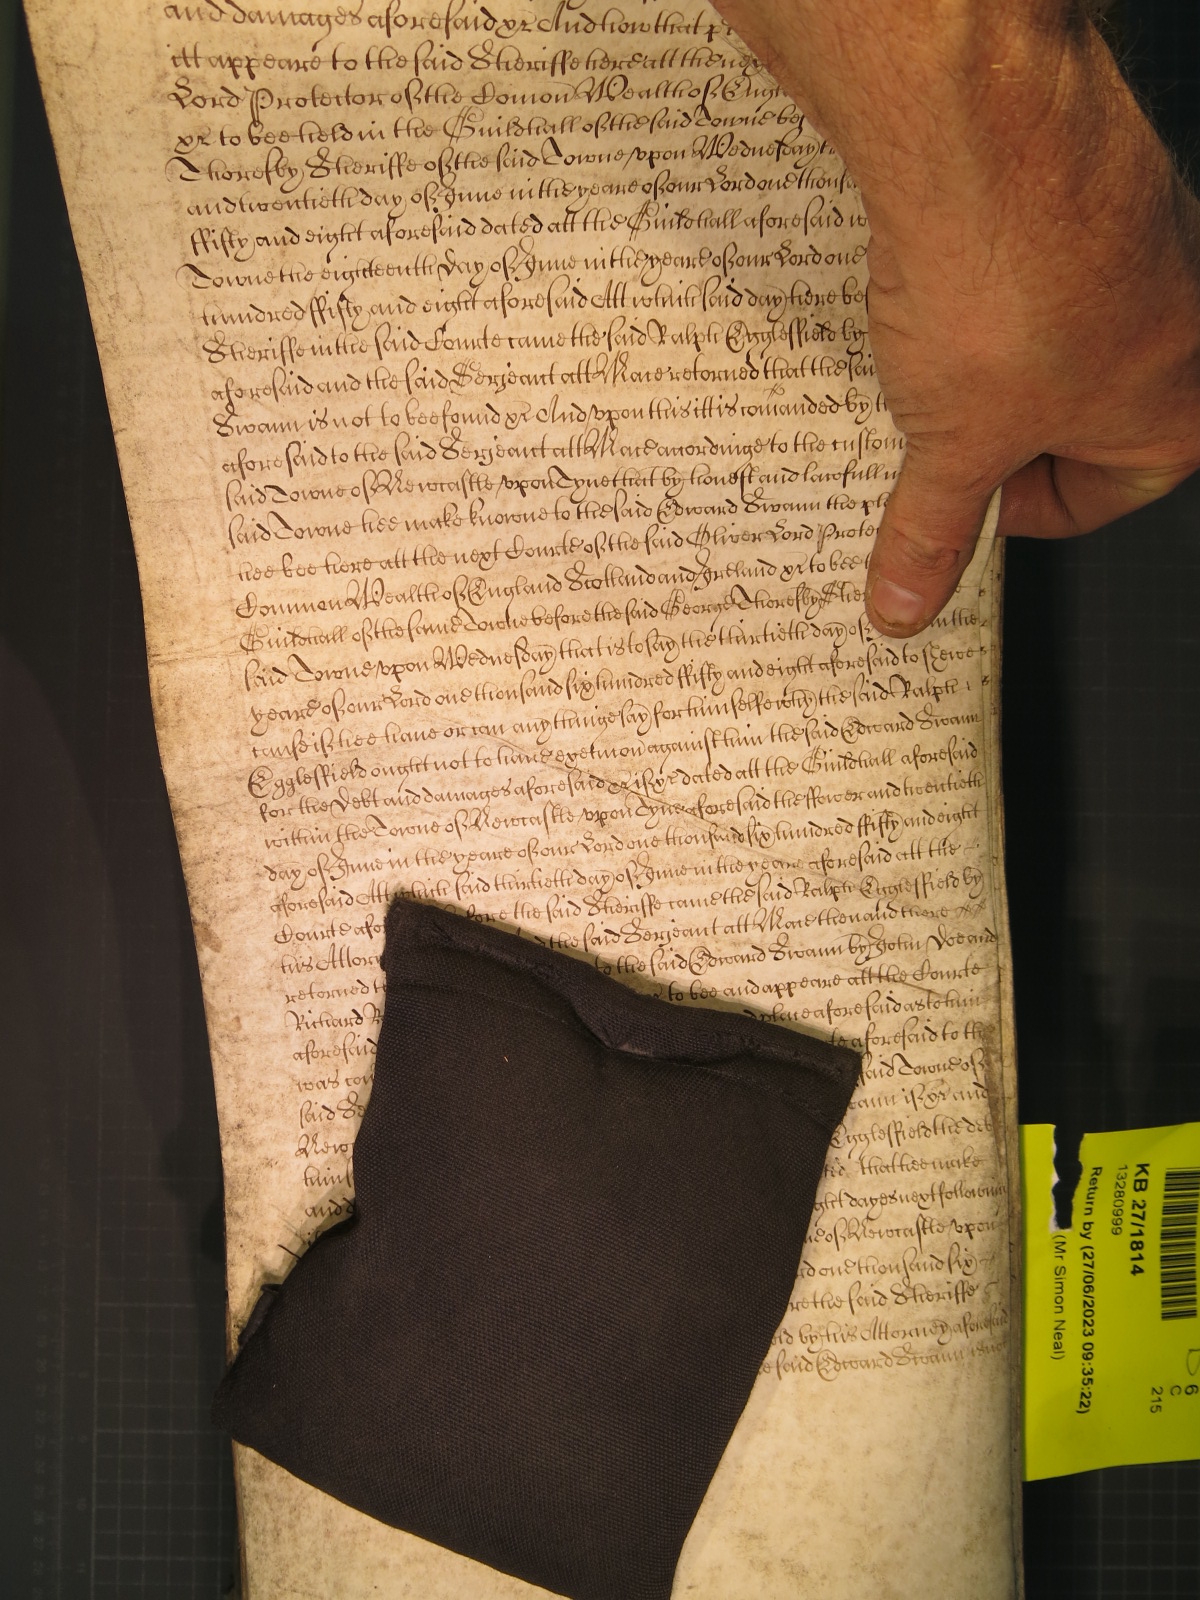 and damages aforesaid &c And how that
itt appeare to the said Sheriffe here att the next
Lord Protector of the Comon Wealth of Engl
&c to bee held in the Guildhall of the said Towne bef
Thoresby Sheriffe of the said Towne upon Wednesday
and twentieth day of June in the yeare of our Lord one thous
ffifty and eight aforesaid dated att the Guildhall aforesaid
Towne the eighteenth day of June in the yeare of our Lord one
hundred ffifty and eight aforesaid Att which said day here bef
Sheriffe in the said Courte came the said Ralph Egglesffield by
aforesaid and the said Serjeant att Mace retorned that the said
Swann is not to bee found &c And upon this itt is comanded by
aforesaid to the said Serjeant att Mace accordinge to the custom
said Towne of Newcastle upon Tyne that by honest and lawfull
said Towne hee make knowne to the said Edward Swann the
hee bee here att the next Courte of the said Oliver Lord Protec
Common Wealth of England Scotland and Ireland &c to bee
Guildhall of the same Towne before the said George Thoresby Sher in the
said Towne upon Wednesday that is to say the thirtieth day of
yeare of our Lord one thousand six hundred ffifty and eight aforesaid to shewe
cause if hee have or can any thinge say for himselfe why the said Ralph
Egglesffield ought not to have execucon against him the said Edward Swann
for the Debt and damages aforesaid &c if &c dated att the Guildhall aforesaid
within the Towne of Newcastle upon Tyne aforesaid the ffower and twentieth
day of June in the yeare of our Lord one thousand six hundred ffifty and eight
aforesaid Att which said thirtieth day of June in the yeare aforesaid att the
Courte afor fore the said Sheriffe came the said Ralph Egglesffield by
his Attorn the said Serjeant att Mace then and there
retorned to the said Edward Swann by John Doe and
Richard R to bee and appeare att the Courte
aforesaid place aforesaid as to him
was com aforesaid to the
said Se said Towne of
New wann if &c and
him Egglesffield the deb
and that hee make
ght dayes next followin
of Newcastle upon
one thousand six
the said Sheriffe
by his Attorney aforesaid
said Edward Swann
KB 27/1814
13280999
Return by (27/06/2023 09:35:22)
(Mr Simon Neal)
6
C
215